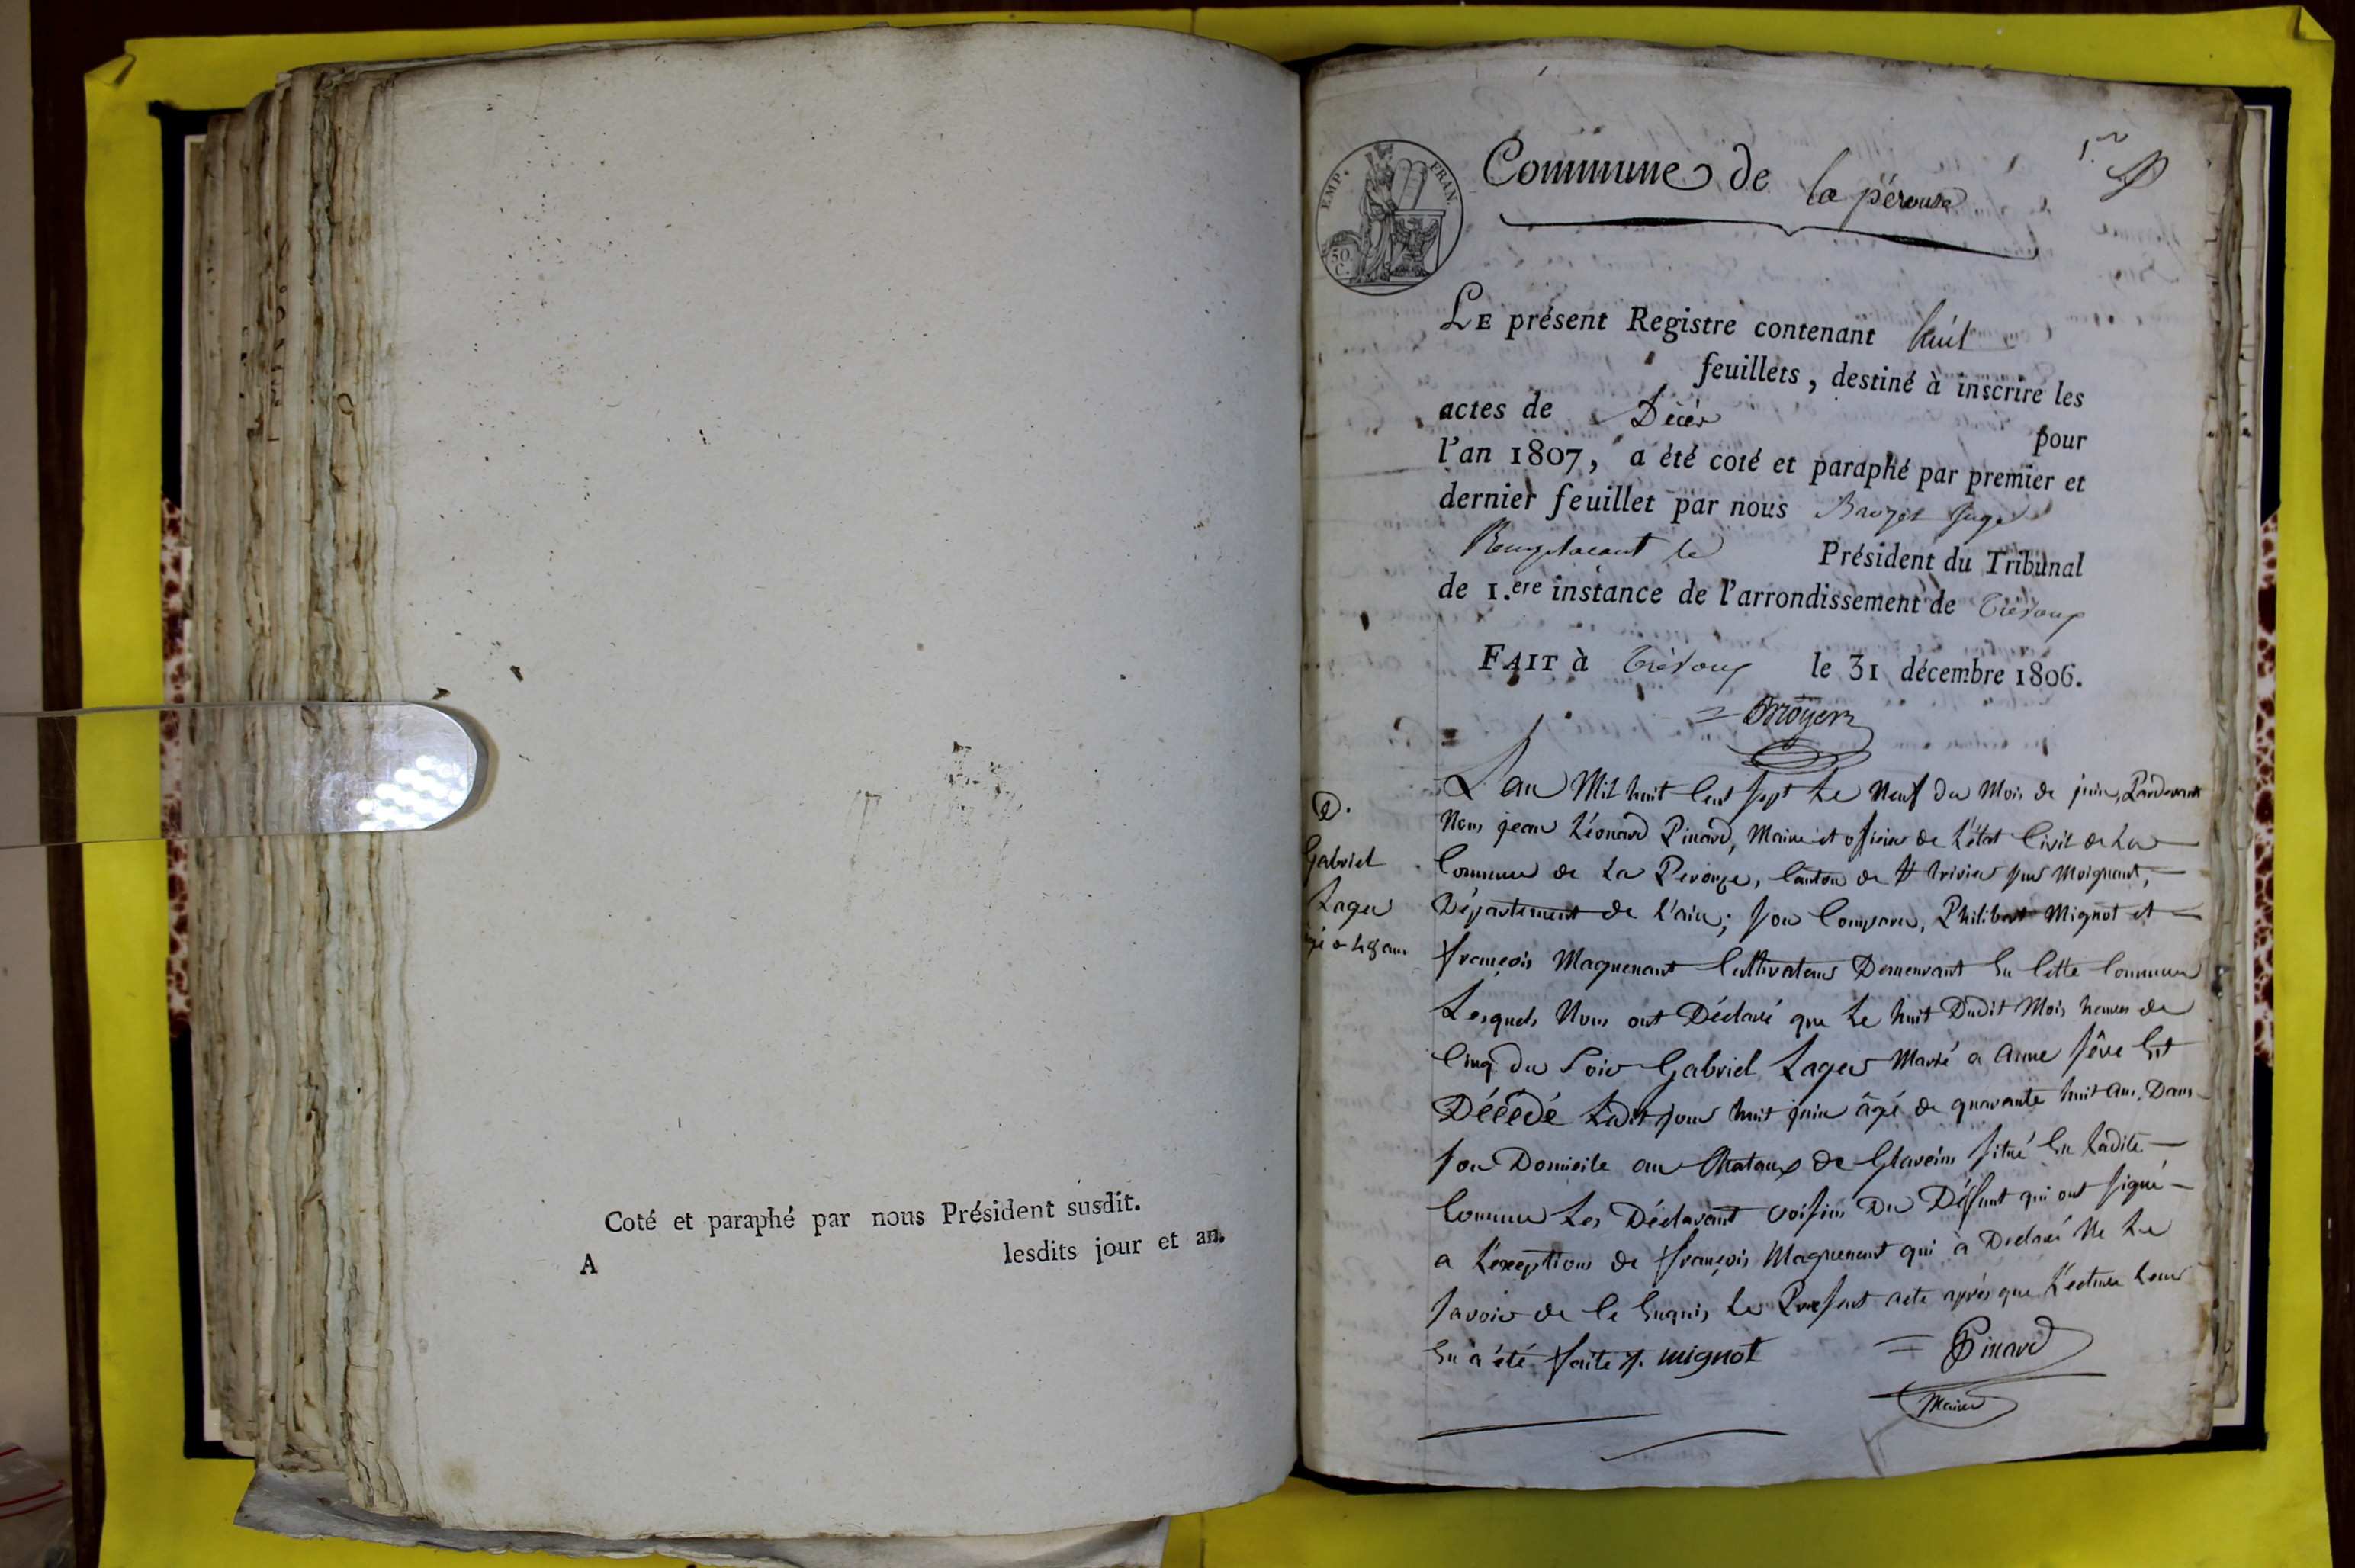 Coté et paraphé par nous Président susdit.
A lesdits jour et an.
1.er
EMP. FRAN.
50 C.
Commune de la pérouse
LE présent Registre contenant huit
feuillets, destiné à inscrire les
actes de Décès pour
l'an 1807, a été coté et paraphé par premier et
dernier feuillet par nous juge
Remplacant le Président du Tribunal
de 1.ere instance de l'arrondissement de Trévoux
FAIT à Trévoux le 31 décembre 1806.
D.
Gabriel
Lager
âgé de 48 ans
L'an Mil huit Cent sept Le Neuf du Mois de juin, Pardevant
Nous jean Léonard Pinard, Maire et officier de L'état Civil de La
Commune de La Perouze, Canton de St trivier sur Moignant,
Département de L'ain; sont Comparu, Philibert Mignot et
françois Maguenant Cultivateurs Demeurant En Cette Commune
Lesquels Nous ont Déclaré que Le huit Dudit Mois heures de
Cinq du Soir Gabriel Lager Marié a Anne sêve Est
Décédé Ledit jour huit juin âgé de quarante huit ans, Dans
son Domicile au de Glareins situé En Ladite
Commune Les Déclarant voisins Du Défunt qui ont signé
a L'exeptions de françois Maguenant qui à Declaré Ne Le
savoir de Ce Enquis Le Present acte après que Lecture Leur
En à été faite p. mignot Pinard
Maire